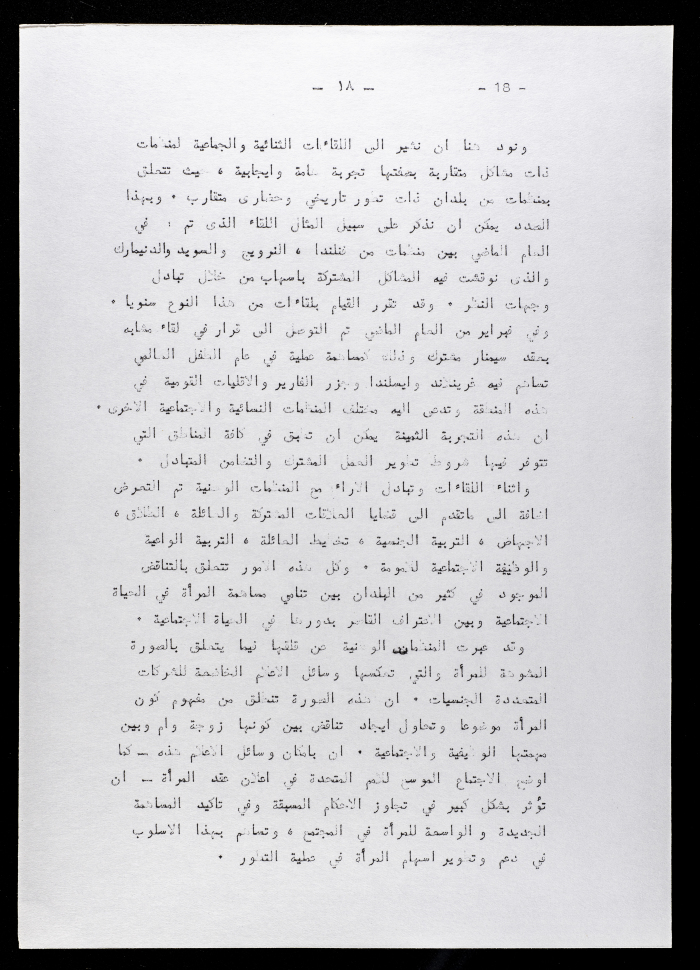 - ١٨ -
- 18 -
ونود هنا ان نشير الى اللقاءات الثنائية والجماعية لمنظمات
ذات مشاكل متقاربة بصفتها تجربة هامة وايجابية ، حيث تتعلق
بمنظمات من بلدان ذات تطور تاريخي وحضارى متقارب . وبهذا
الصدد يمكن ان نذكر على سبيل المثال اللقاء الذى تم : في
العام الماضي بين منظمات من فنلندا ، النرويج والسويد والدنيمارك
والذى نوقشت فيه المشاكل المشتركة باسهاب من خلال تبادل
وجهات النظر . وقد تقرر القيام بلقاءات من هذا النوع سنويا .
وفي فبراير من العام الماضي تم التوصل الى قرار في لقاء مشابه
بعقد سيمنار مشترك وذلك كمساهمة عملية في عام الطفل العالمي
تساهم فيه غرينلاند وايسلندا وجزر الفارير والاقليات القومية في
هذه المنطقة وتدعى اليه مختلف المنظمات النسائية والاجتماعية الاخرى .
ان هذه التجربة الثمينة يمكن ان تطبق في كافة المناطق التي
تتوفر فيها شروط تطوير العمل المشترك والتضامن المتبادل .
واثناء اللقاءات وتبادل الآراء مع المنظمات الوطنية تم التعرض
اضافة الى ماتقدم الى قضايا العلاقات المشتركة والعائلة ، الطلاق ،
الاجهاض ، التربية الجنسية ، تخطيط العائلة ، التربية الواعية
والوظيفة الاجتماعية للامومة . وكل هذه الامور تتعلق بالتناقض
الموجود في كثير من البلدان بين تنامي مساهمة المرأة في الحياة
الاجتماعية وبين الاعتراف القاصر بدورها في الحياة الاجتماعية .
وقد عبرت المنظمات الوطنية عن قلقها فيما يتعلق بالصورة
المشوهة للمرأة والتي تعكسها وسائل الاعلام الخاضعة للشركات
المتعددة الجنسيات . ان هذه الصورة تنطلق من مفهوم كون
المرأة موضوعا وتحاول ايجاد تناقض بين كونها زوجة وام وبين
مهمتها الوظيفية والاجتماعية . ان بامكان وسائل الاعلام هذه – كما
اوضح الاجتماع الموسع للامم المتحدة في اعلان عقد المرأة – ان
تؤثر بشكل كبير في تجاوز الاحكام المسبقة وفي تاكيد المساهمة
الجديدة و الواسعة للمرأة في المجتمع ، وتساهم بهذا الاسلوب
في دعم وتطوير اسهام المرأة في عملية التطور .